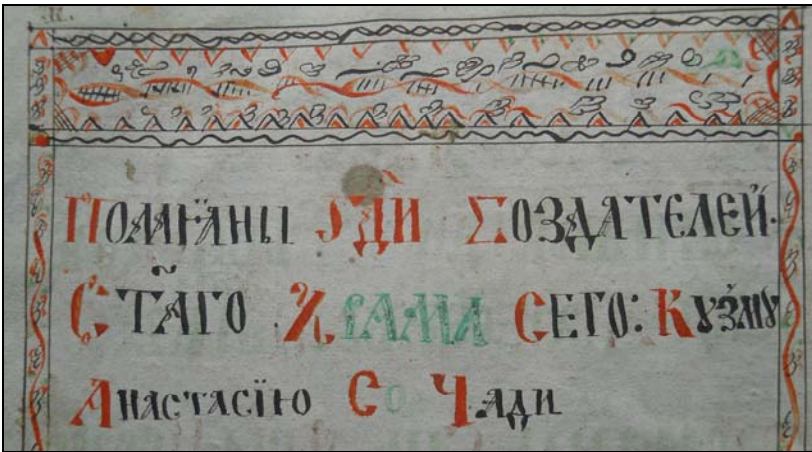 Помѧ́ни Гдⷭ҇и Создателей.
Ст҃аго Храма Сего: Кꙋзмꙋ
Анастасїю Со Чади